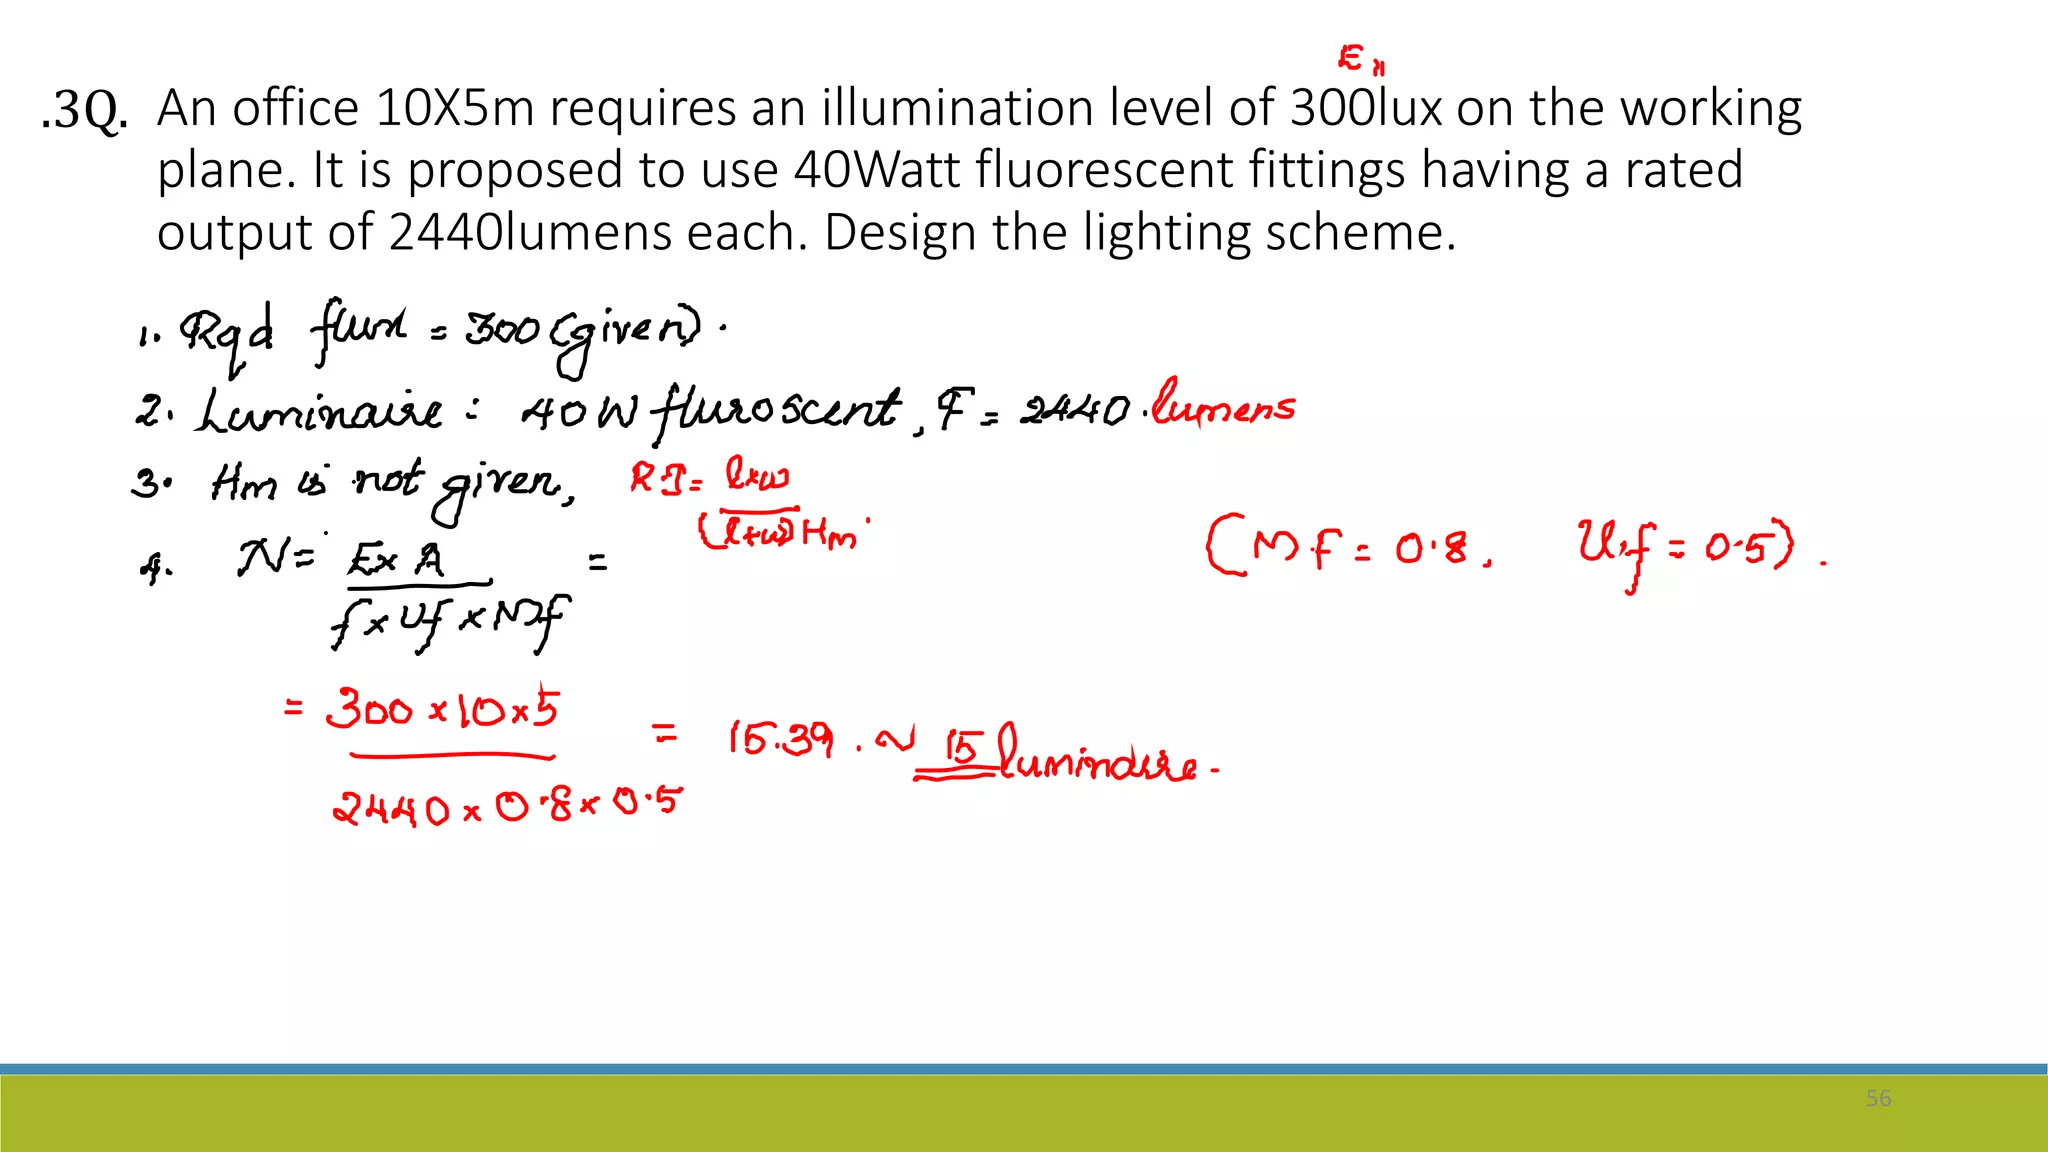 E,,
.3Q. An office 10X5m requires an illumination level of 300lux on the working
plane. It is proposed to use 40Watt fluorescent fittings having a rated
output of 2440lumens each. Design the lighting scheme.
1. Rqd flux = 300 (given).
2. Luminaire : 40W fluroscent, F = 2440. lumens
3. Hm is not given, RI = l×w
(l+w) Hm.
4. N = E× A =
(M.F = 0.8, U.f = 0.5).
f × Uf × Mf
= 300 × 10 × 5
= 15.39. ~ 15 luminaire.
2440 × 0.8 × 0.5
56